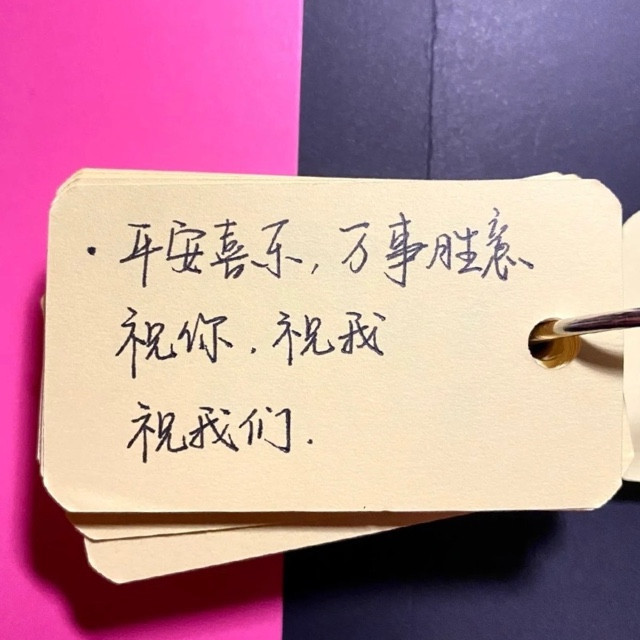 · 平安喜乐，万事胜意
祝你．祝我
祝我们．